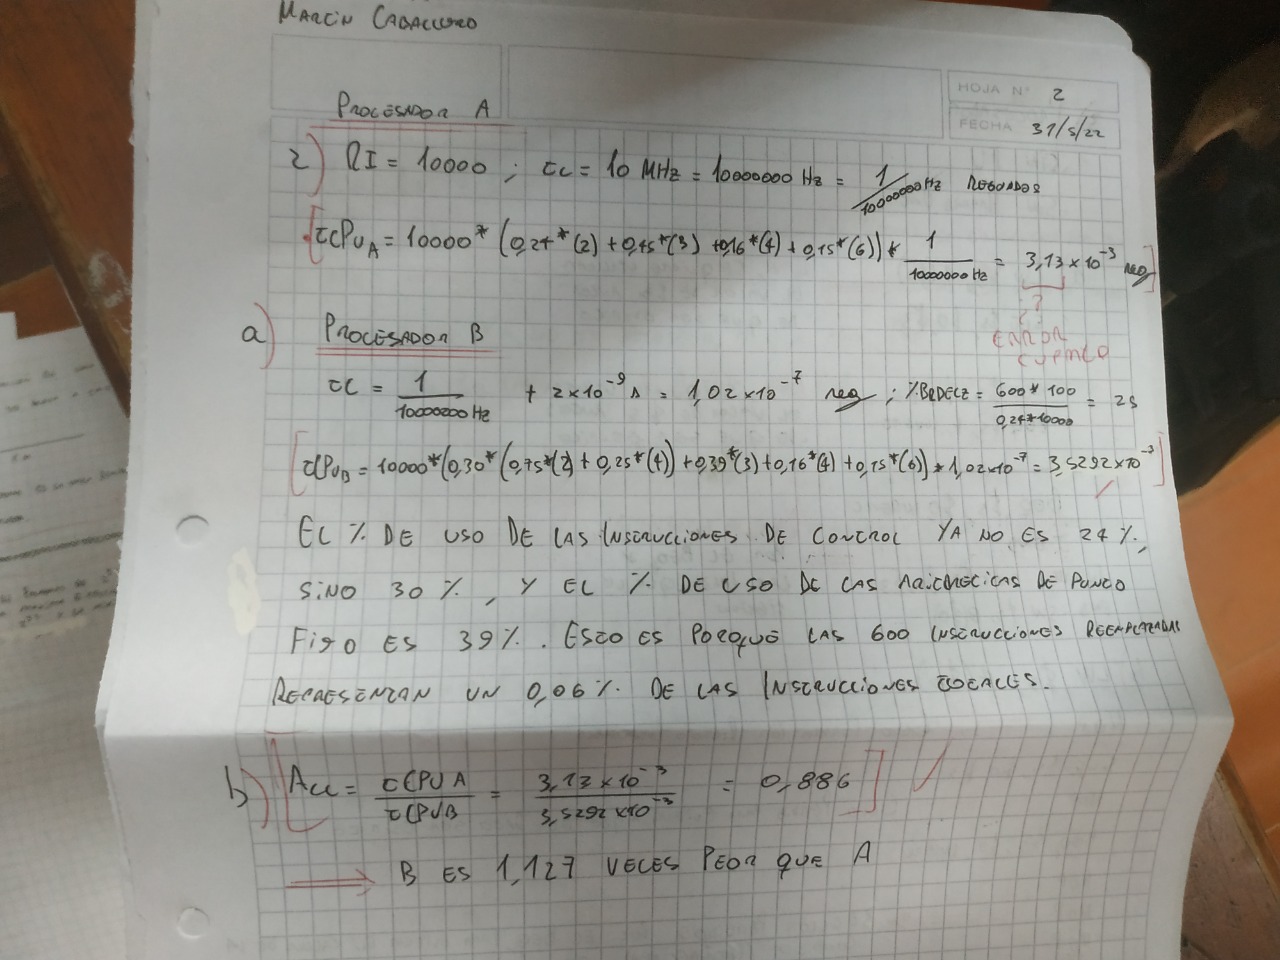 MARTÍN CABALLERO
HOJA N° 2
FECHA 31/5/22
PROCESADOR A
2) RI = 10000 ; tC = 10 MHz = 10000000 Hz = 1/10000000 Hz SEGUNDOS
tCPU A = 10000* (0,24*(2) + 0,45*(3) + 0,16*(4) + 0,15*(6)) * 1/10000000 Hz = 3,13 x 10^-3 seg
?
ERROR
a) PROCESADOR B
tC = 1/10000000 Hz + 2x10^-9 s = 1,02 x 10^-7 seg ; % = 600 * 100 / 0,24*10000 = 25
tCPU B = 10000*(0,30*(0,75*(2) + 0,25*(4)) + 0,39*(3) + 0,16*(4) + 0,15*(6)) * 1,02x10^-7 = 3,5292x10^-3
EL % DE USO DE LAS INSTRUCCIONES DE CONTROL YA NO ES 24%,
SINO 30%, Y EL % DE USO DE LAS ARITMÉTICAS DE PUNTO
FIJO ES 39%. ESTO ES PORQUE LAS 600 INSTRUCCIONES REEMPLAZADAS
REPRESENTAN UN 0,06% DE LAS INSTRUCCIONES TOTALES.
b) ACC = tCPU A / tCPU B = 3,13 x 10^-3 / 3,5292 x10^-3 = 0,886
→ B ES 1,127 VECES PEOR QUE A